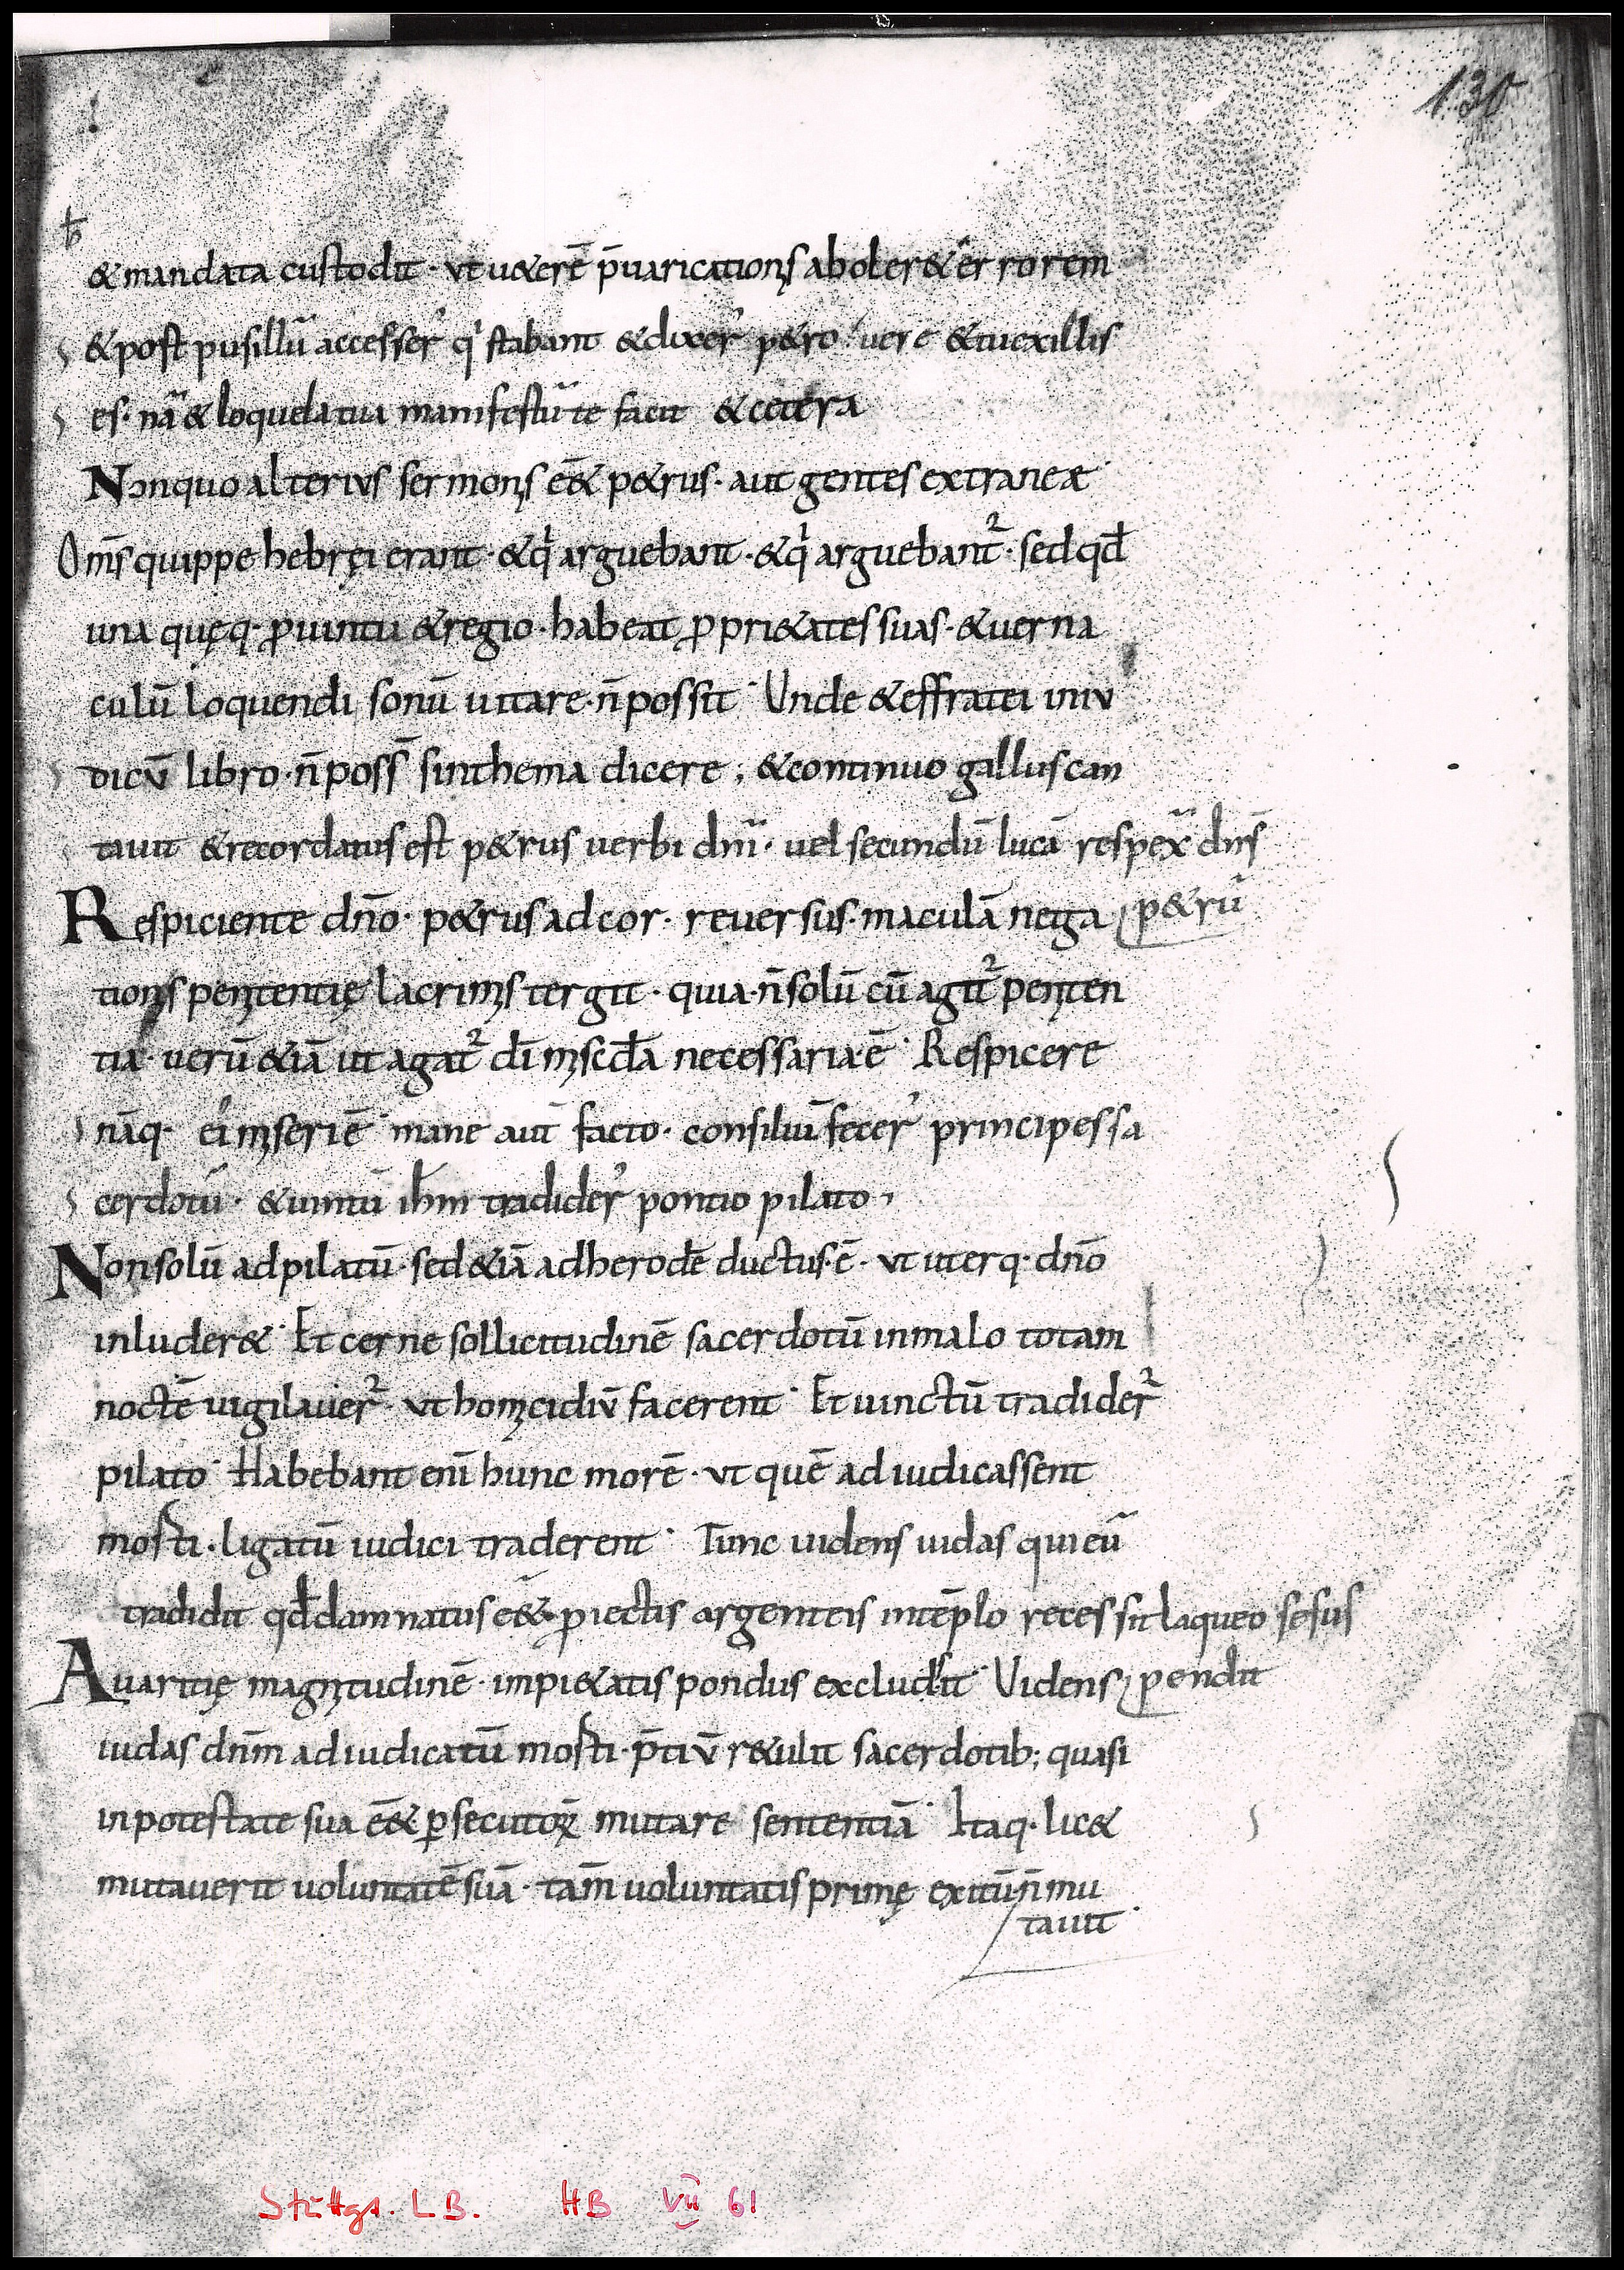 130
& mandata custodit · ut u&erē p̄uarication̄s aboler& errorem
& post pusillū accesser̄ qⁱ stabant & dixer̄ p&ro uere & tu ex illis
es · nā & loquela tua manifestū te facit & cetera
Non quo alterius sermonis ēē& p&rus · aut gentes extraneæ
Om̄s quippe hebręi erant · & qⁱ arguebant · & qⁱ arguebant² · sed qđ
una quęq· ꝓuintu & regio · habeat ꝓpri&ates suas · & uerna
culū loquendi sonū uitare · n̄ possit · Unde & effratei in iu
dicū libro · n̄ poss̄ sinthema dicere ; & continuo gallus can
tauit & recordatus est p&rus uerbi dn̄i · uel secundū lucā respex̄ dn̄s
Respiciente dn̄o · p&rus ad cor · reuersus · maculā nega p&rū
tionis penitentię lacrimis tergit · quia · n̄ solū cū agit² peniten
tia · uerū &iā ut agat² dī misc̄đa necessaria ē · Respicere
nāq· ei miseri ē · mane aut̄ facto · consiliū fecer̄ principes sa
cerdotū · & uintū ih̄m tradider̄ pontio pilato ·
Non solū ad pilatū · sed &iā ad herodē ductus · ē · ut uterq· dn̄o
inluder& · Et cerne sollicitudinē sacerdotū in malo totam
noctē uigilauer² · ut homicidiū facerent · Et uinctū tradider²
pilato · Habebant enī hunc morē · ut quē adiudicassent
morti · ligatū iudici traderent · Tunc uidens iudas qui eū
tradidit qđ damnatus ēē& · ꝓiectis argenteis in tēplo recessit laqueo se sus
Auaritię magnitudinē · impi&atis pondus excludit · Uidens pendit
iudas dn̄m adiudicatū morti · p̄tiū r&ulit sacerdotib; quasi
in potestate sua ēē& ꝑsecutoꝝ mutare sententiā · Itaq· lic&
mutauerit uoluntatē suā · tam̄ uoluntatis primę exitū n̄ mu
tauit ·
Stuttgt. L. B. HB VII 61